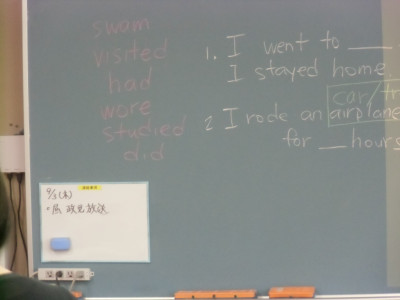 swam
visited
had
wore
studied
did
1. I went to ___
I stayed home
car/tr
2 I rode an airplane
for __ hours
9/5(木)